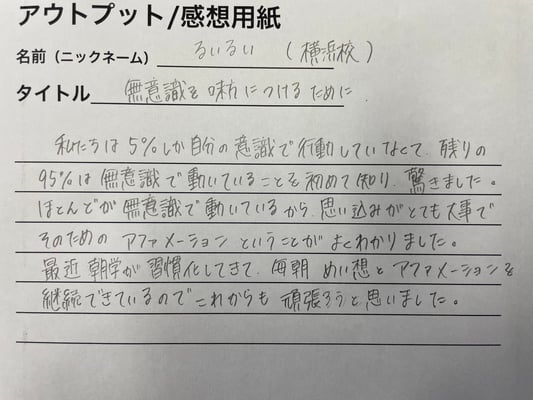 アウトプット/感想用紙
名前（ニックネーム） るいるい （横浜校）
タイトル 無意識を味方につけるために
私たちは5%しか自分の意識で行動していなくて、残りの
95%は無意識で動いていることを初めて知り、驚きました。
ほとんどが無意識で動いているから、思い込みがとても大事で
そのためのアファメーションということがよくわかりました。
最近朝学が習慣化してきて、毎朝めい想とアファメーションを
継続できているのでこれからも頑張ろうと思いました。